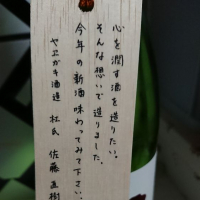 心を潤す酒を造りたい。
そんな想いで造りました。
今年の新酒味わってみて下さい。
やヱガキ酒造 杜氏 佐藤直樹